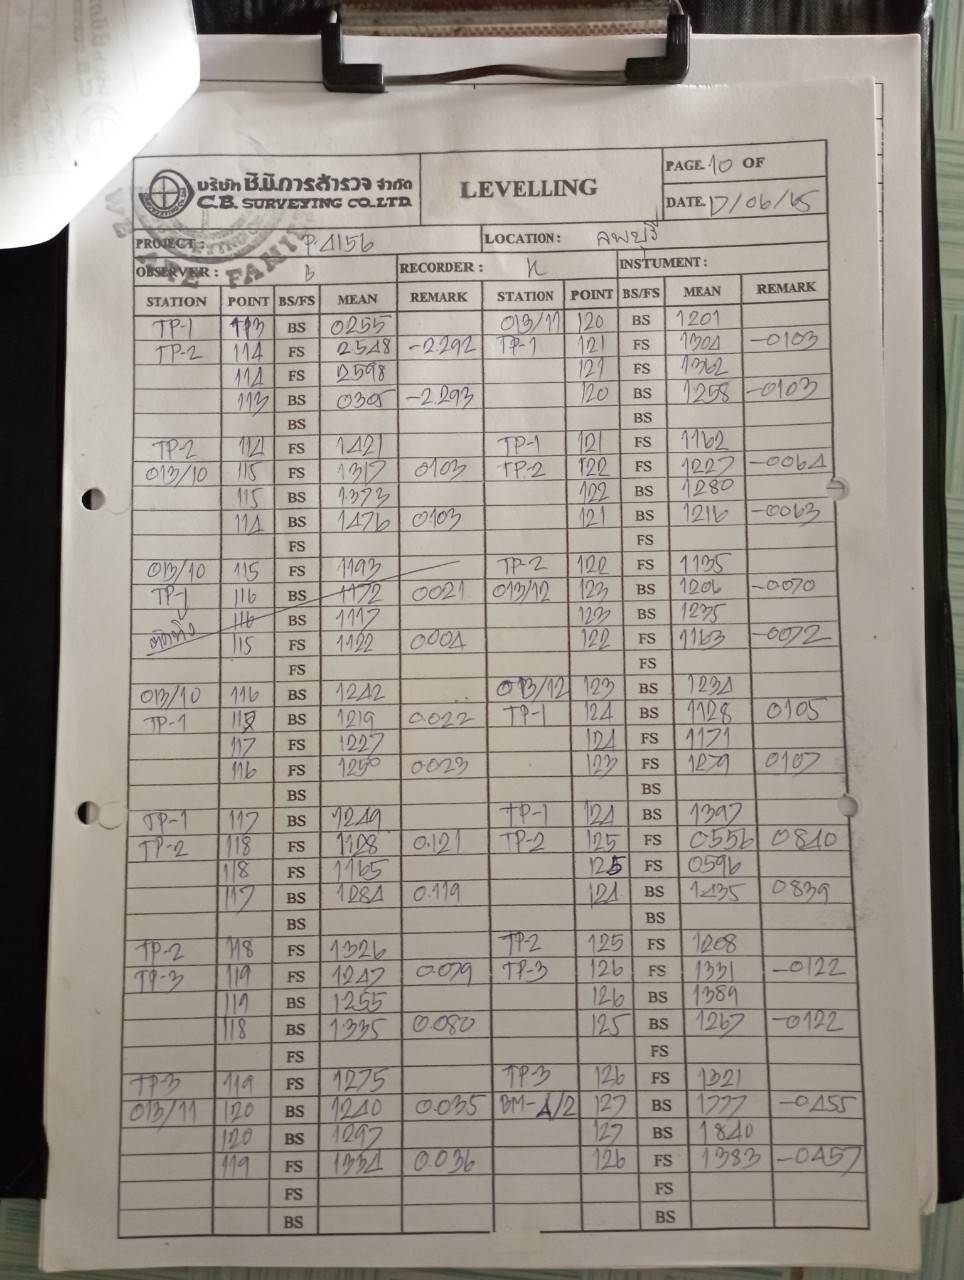 บริษัท ซี.บี.การสำรวจ จำกัด
C.B. SURVEYING CO.,LTD
LEVELLING
PAGE. 10 OF
DATE. 17/06/65
PROJECT : P.4156 LOCATION : ลพบุรี
OBSERVER : b RECORDER : K INSTUMENT :
STATION POINT BS/FS MEAN REMARK STATION POINT BS/FS MEAN REMARK
TP-1 113 BS 0255 013/11 120 BS 1201
TP-2 114 FS 2548 -2.292 TP-1 121 FS 1304 -0103
114 FS 2598 121 FS 1362
113 BS 0305 -2.293 120 BS 1258 -0103
BS BS
TP-2 114 FS 1421 TP-1 121 FS 1162
013/10 115 FS 1317 0103 TP-2 122 FS 1227 -0064
115 BS 1373 122 BS 1280
114 BS 1476 0103 121 BS 1216 -0063
FS FS
013/10 115 FS 1193 TP-2 122 FS 1135
TP-1 116 BS 1172 0021 013/12 123 BS 1206 -0070
116 BS 1117 123 BS 1235
115 FS 1122 0004 122 FS 1163 -0072
FS FS
013/10 116 BS 1242 013/12 123 BS 1234
TP-1 117 BS 1219 0.022 TP-1 124 BS 1128 0105
117 FS 1227 124 FS 1171
116 FS 1250 0.023 123 FS 1279 0107
BS BS
TP-1 117 BS 1249 TP-1 124 BS 1397
TP-2 118 FS 1128 0.121 TP-2 125 FS 0556 0840
118 FS 1165 125 FS 0596
117 BS 1284 0.119 124 BS 1435 0839
BS BS
TP-2 118 FS 1326 TP-2 125 FS 1208
TP-3 119 FS 1247 0.079 TP-3 126 FS 1331 -0122
119 BS 1255 126 BS 1389
118 BS 1.335 0.080 125 BS 1267 -0122
FS FS
TP-3 119 FS 1275 TP-3 126 FS 1321
013/11 120 BS 1240 0.035 BM-4/2 127 BS 1777 -0455
120 BS 1297 127 BS 1840
119 FS 1334 0.036 126 FS 1383 -0457
FS FS
BS BS